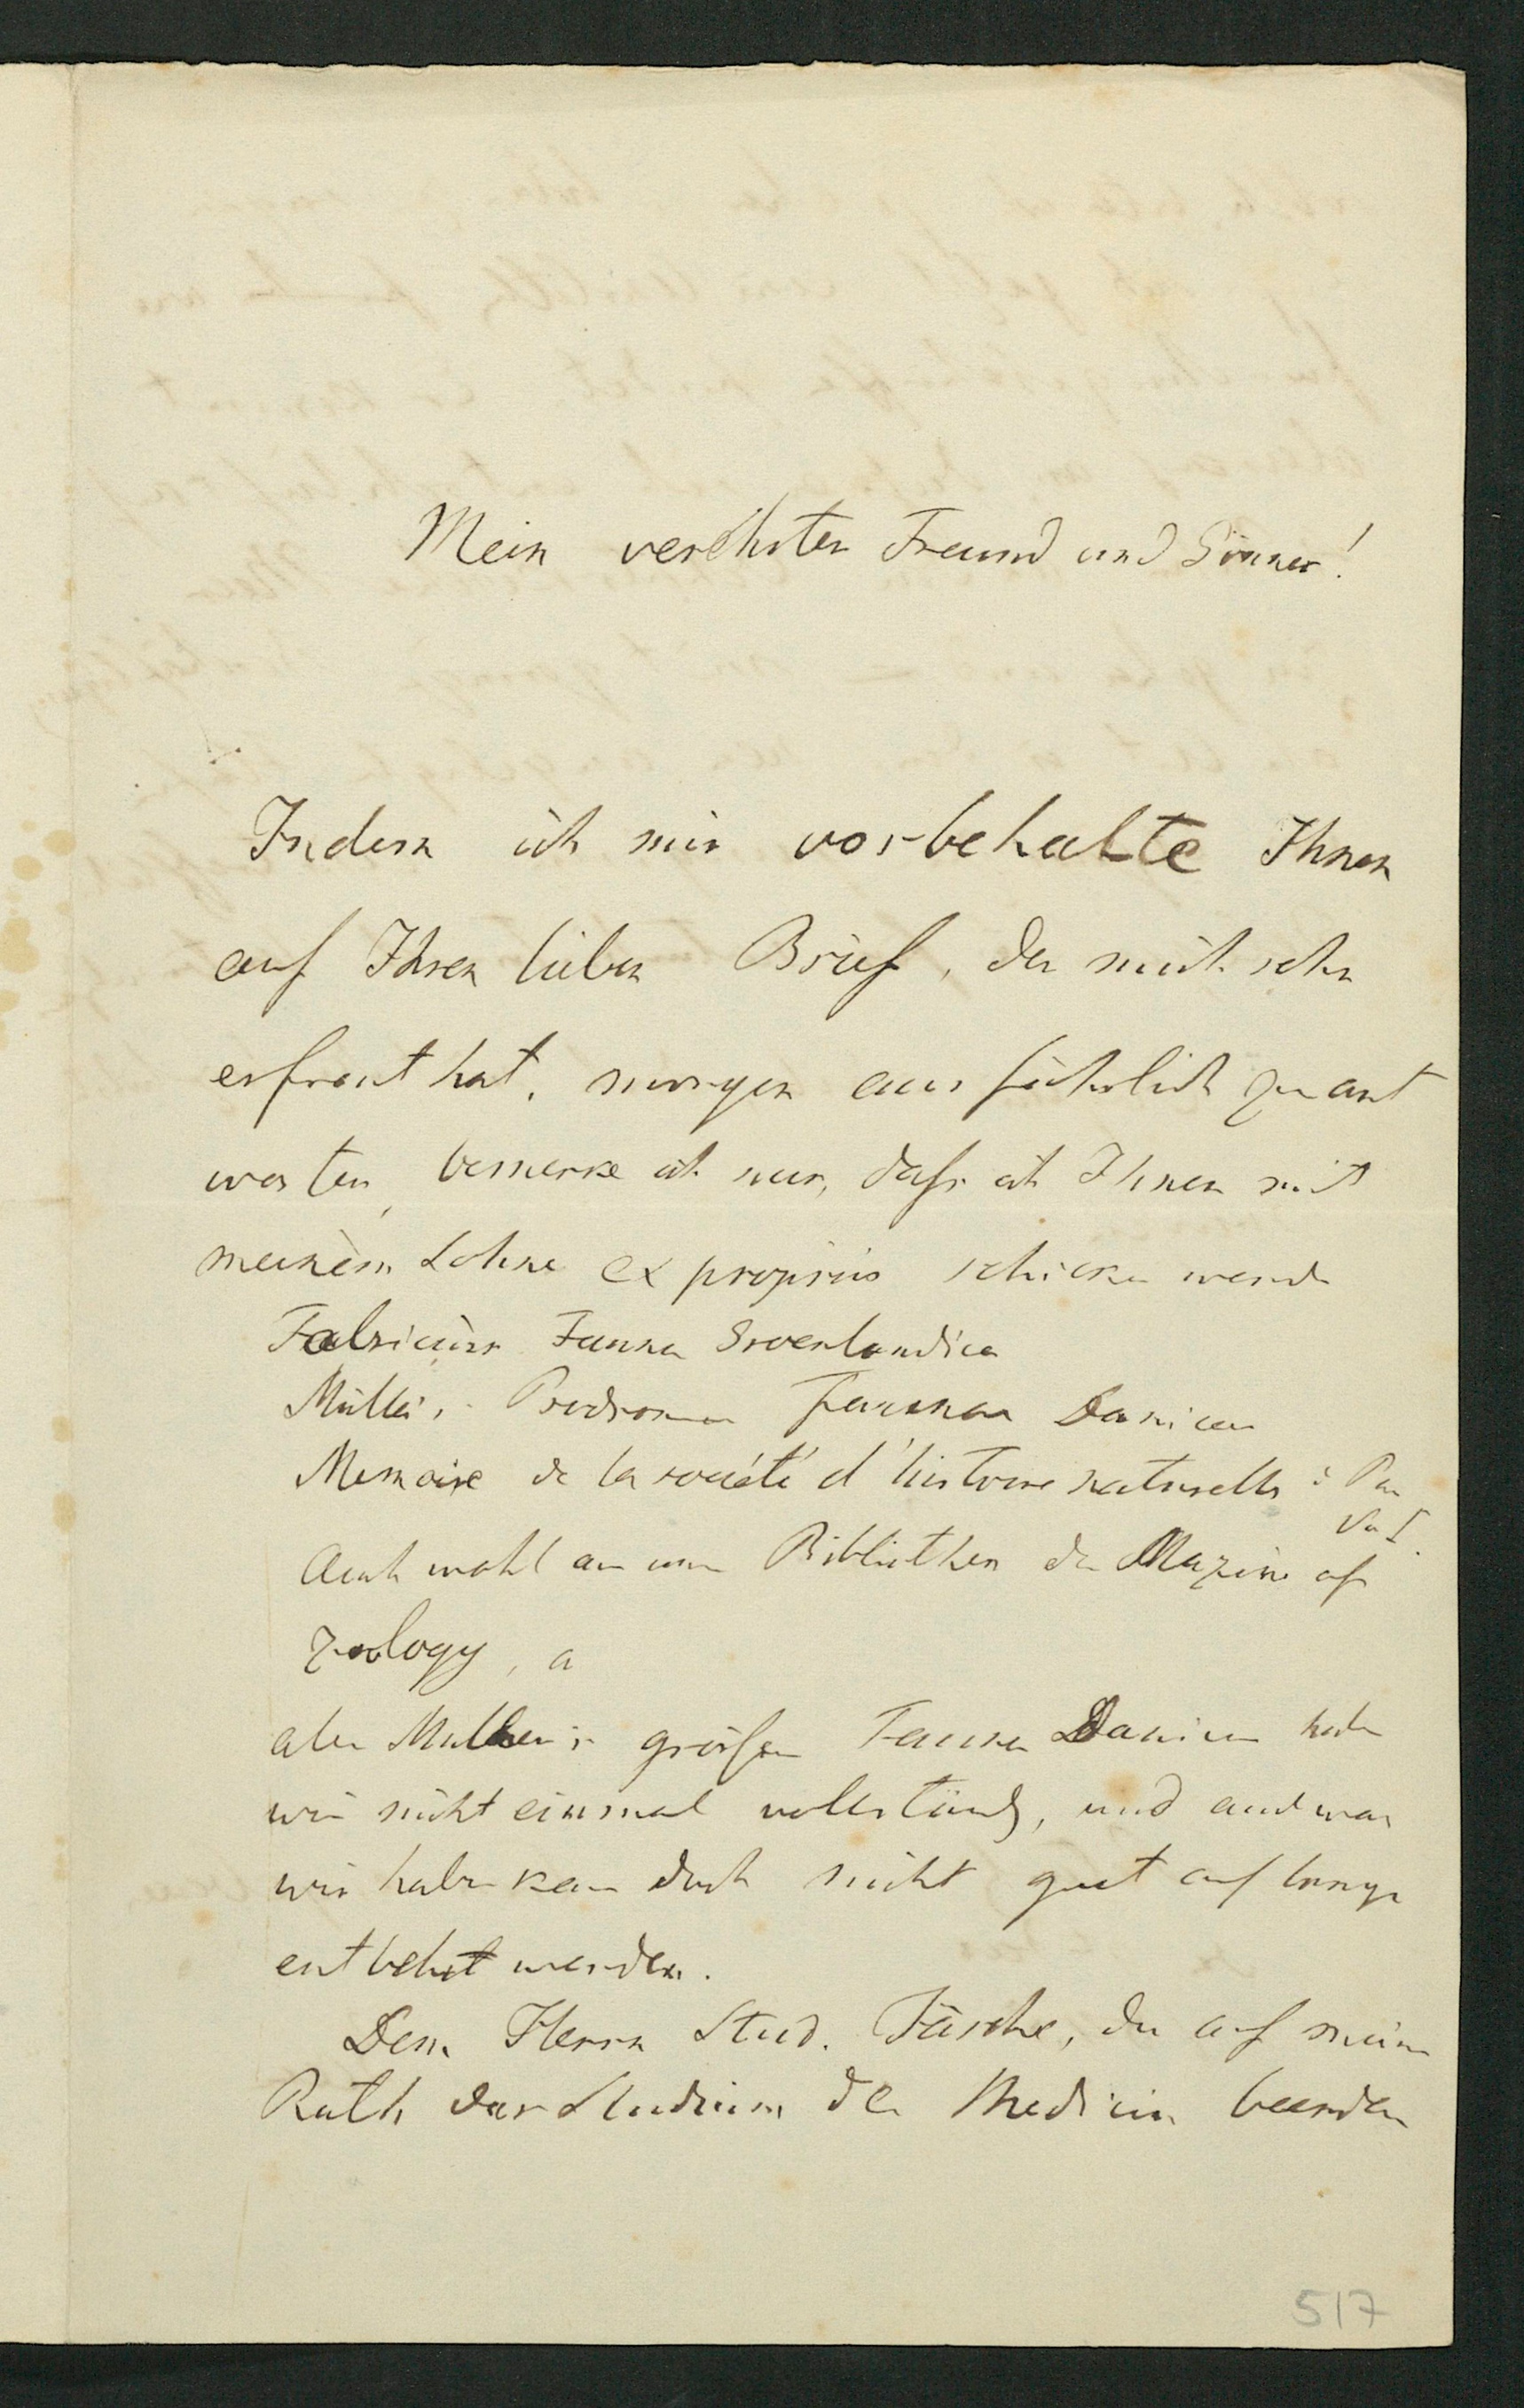 Mein verehrter Freund und Gönner!
Indem ich mir vorbehalte Ihnen
auf Ihren lieben Brief, der mich sehr
erfreut hat, morgen ausführlich zu ant
worten, bemerke ich nur, daß ich Ihnen mit
meinem Sohne ex propriis schicken werde
Fabricius Fauna Groenlandica
Müller, Prodromus Faunae Danicae
Memoire de la société d'histoire naturelle à Par
Vol I.
Auch wohl aus der Bibliothek den Magazine of
zoology, a
aber Müller's großen Fauna Danica haben
wir nicht einmal vollständig, und auch was
wir haben kann doch nicht gut auf lange
entbehrt werden.
Dem Herrn Stud. Jäsche, der auf meinen
Rath das Studium der Medicin beenden
517